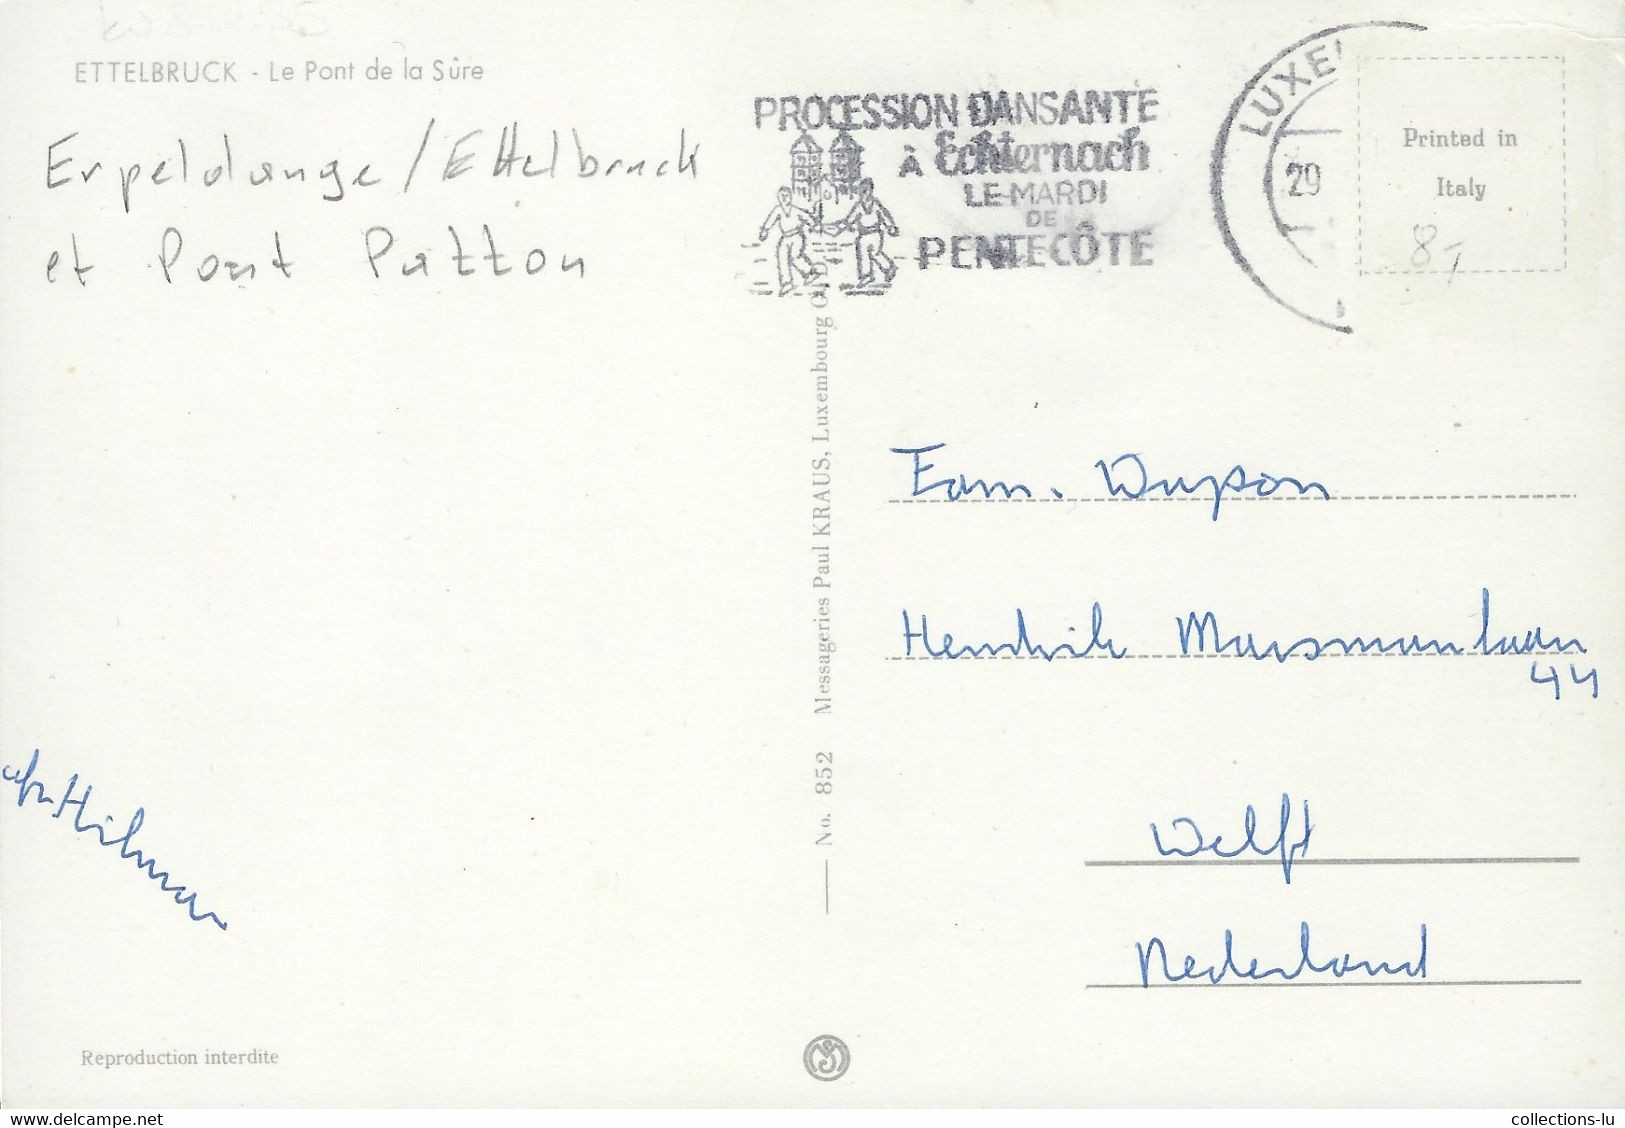 ETTELBRUCK - Le Pont de la Sûre
Erpeldange/Ettelbruck
et Pont Patton
PROCESSION DANSANTE
À Echternach
LE MARDI
DE
PENTECÔTE
LUXE
29
Printed in
Italy
8,-
No. 852 Messageries Paul KRAUS, Luxembourg
Fam. Dupon
Hendrik Marsmanlaan
44
Delft
Nederland
afz. Hilmar
Reproduction interdite
delcampe.net
collections-lu